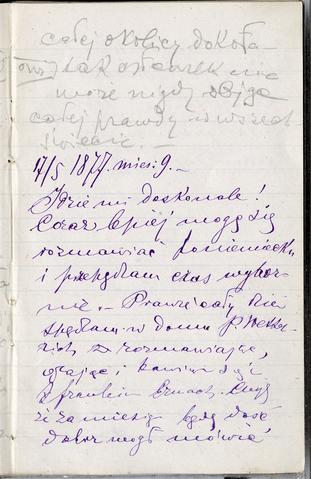 całej okolicy dokoła
tak ułamek nie
może nigdy objąć
całej prawdy w wszech
świecie. —
17/5 1877. mies: 9. —
Idzie mi doskonale!
Coraz lepiej mogę się
rozmawiać po niemiecku
i przepędzam czas wybor-
nie. — Prawie cały dzień
spędzam w domu P.
rozmawiając,
grając i bawiąc się
z fraulein Myślę
że za miesiąc będę dość
dobrze mógł mówić